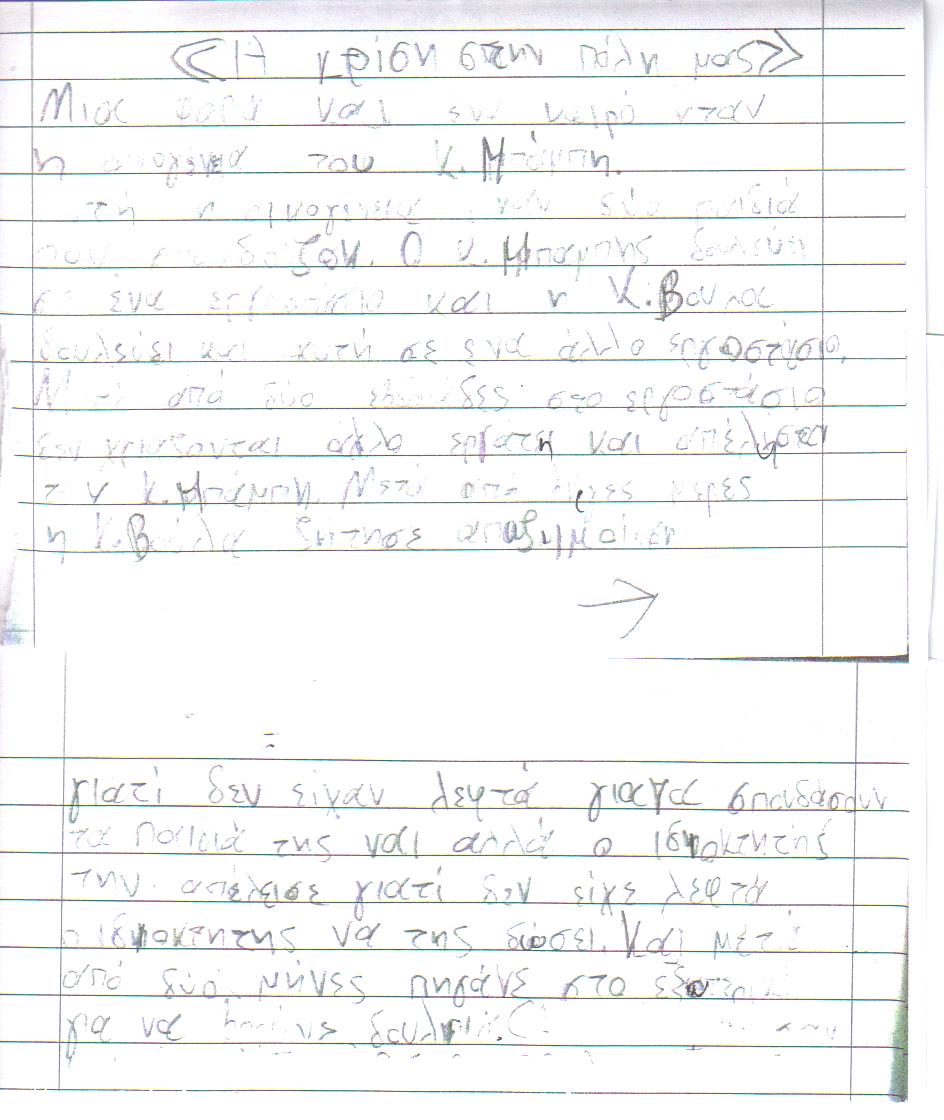 <<Η κρίση στην πόλη μας>>
Μιας φορα και ενα καιρό νταν
η οικογένεια του κ. Μπάμπη.
η οικογένεια δύο παιδιά
που Ο κ. Μπαμπης δουλεύει
σε ένα εργοστάσιο και η Κ. Βουλα
δουλεύει και αυτή σε ένα άλλο εργοστάσιο,
από δύο εβδομάδες στο εργοστάσιο
δεν χριαζονται άλλο εργάτη και απέλησαν
τον κ. Μπάμπη. Μετά απο λίγες μερες
η Κ. Βούλα ζήτησε αποζημοίωση
→
γιατί δεν είχαν λεφτά για να σπουδάσουν
τα παιδιά της ναι αλλά ο ιδιοκτητής
την απέλισε γιατί δεν είχε λεφτά
ο ιδιοκτητης να της δώσει. Και μετά
από δύο μήνες πηγάνε στο εξωτερικό
για να